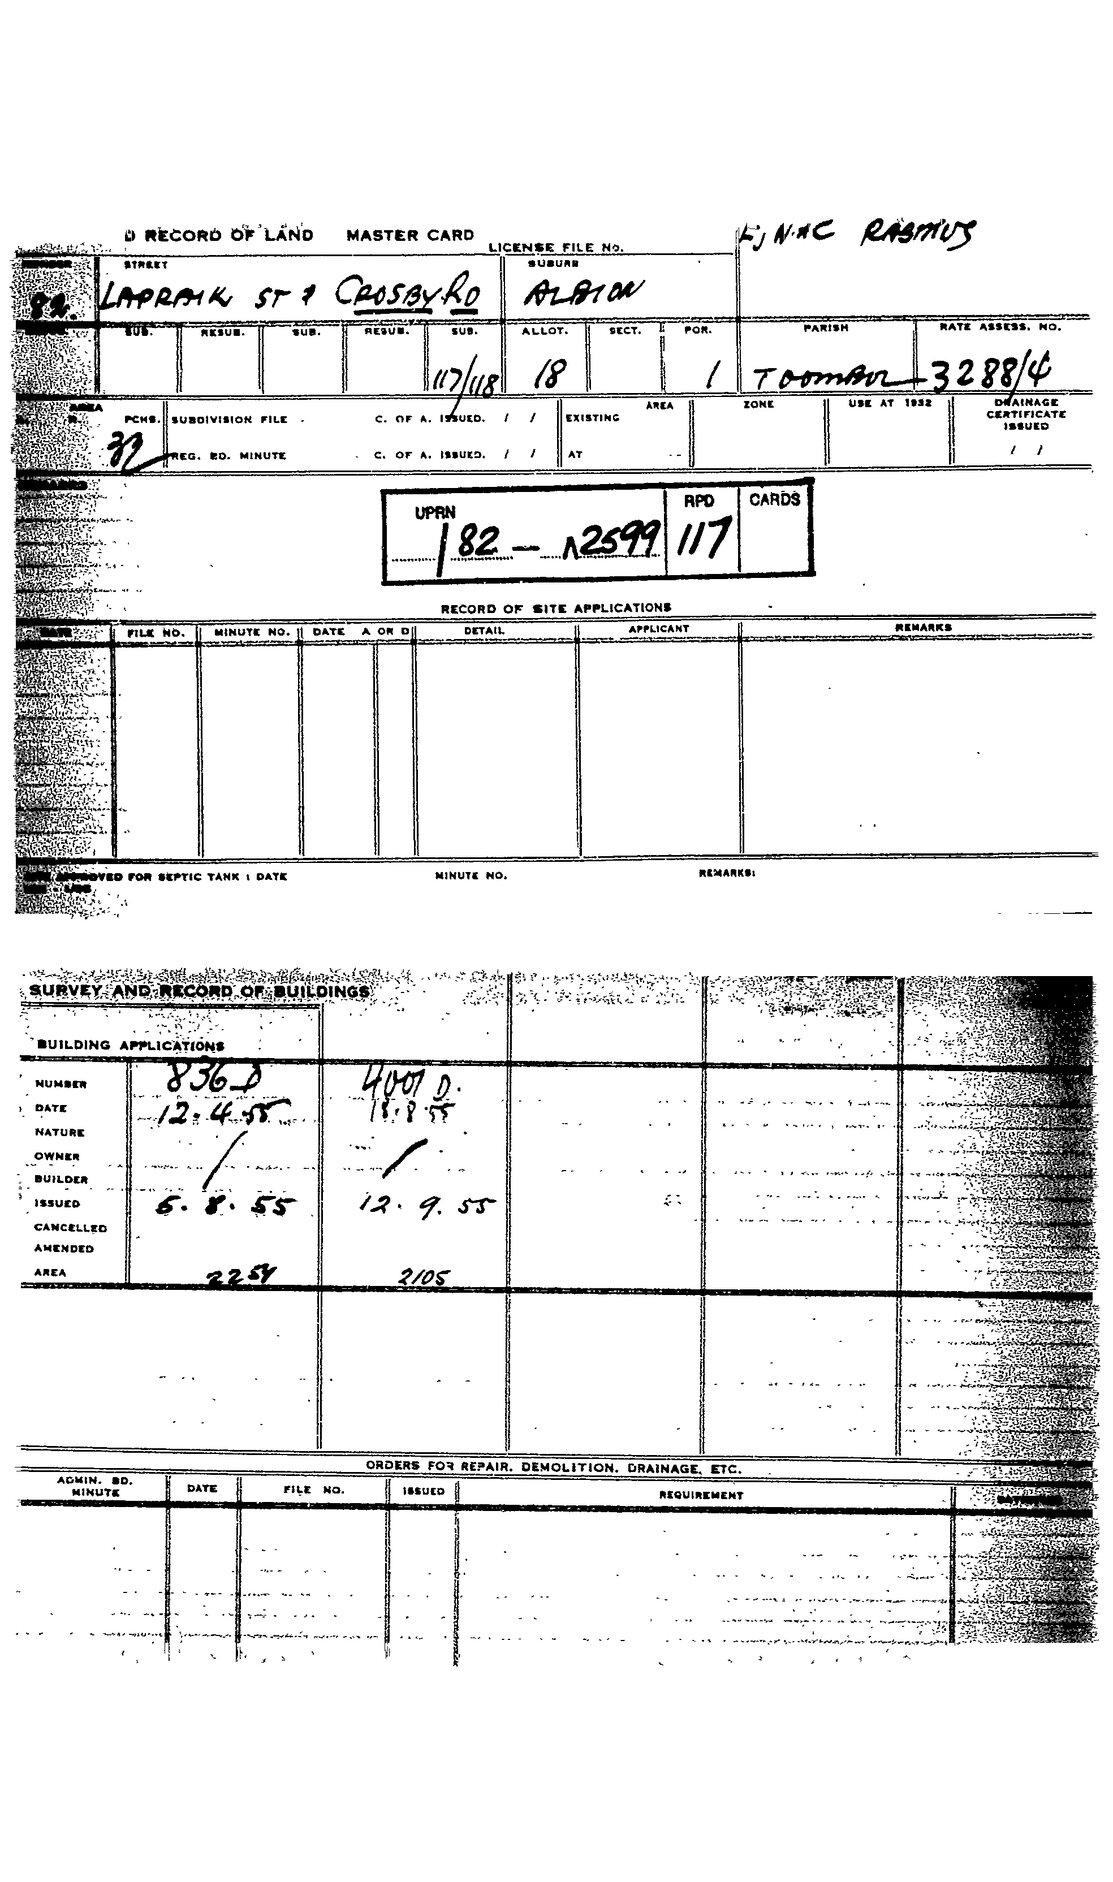 D RECORD OF LAND MASTER CARD
LICENSE FILE No.
N & C RASMUS
NUMBER STREET SUBURB
82. LAPRAIK ST & CROSBY RD ALBION
SUB. RESUB. SUB. RESUB. SUB. ALLOT. SECT. POR. PARISH RATE ASSESS. NO.
117/118 18 1 TOOMBUL 3288/4
AREA PCHS. SUBDIVISION FILE C. OF A. ISSUED. / / EXISTING AREA ZONE USE AT 1952 DRAINAGE CERTIFICATE ISSUED
REG. BD. MINUTE C. OF A. ISSUED. / / AT / /
REMARKS
UPRN RPD CARDS
182 — 2599 117
RECORD OF SITE APPLICATIONS
DATE FILE NO. MINUTE NO. DATE A OR D DETAIL APPLICANT REMARKS
APPROVED FOR SEPTIC TANK : DATE MINUTE NO. REMARKS:
SURVEY AND RECORD OF BUILDINGS
BUILDING APPLICATIONS
NUMBER 836 D 4001 D.
DATE 12.4.55 18.8.55
NATURE / /
OWNER
BUILDER
ISSUED 5.8.55 12.9.55
CANCELLED
AMENDED
AREA 2254 2105
ORDERS FOR REPAIR. DEMOLITION. DRAINAGE, ETC.
ADMIN. BD. MINUTE DATE FILE NO. ISSUED REQUIREMENT